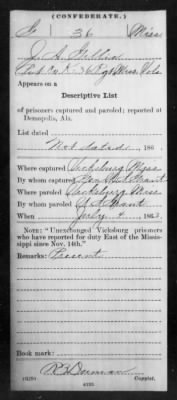 (CONFEDERATE.)
G 36 Miss
J. A.
Pvt Co. K. 36 Regt Miss. Vols
Appears on a
Descriptive List
of prisoners captured and paroled; reported at
Demopolis, Ala.
List dated
Not dated, 186 .
Where captured Vicksburg Miss
By whom captured Gen Grant
Where paroled Vicksburg Miss
By whom paroled Grant
When July 4, 1863.
NOTE: "Unexchanged Vicksburg prisoners
who have reported for duty East of the Missis-
sippi since Nov. 14th."
Remarks: Present
Book mark:
Copyist.